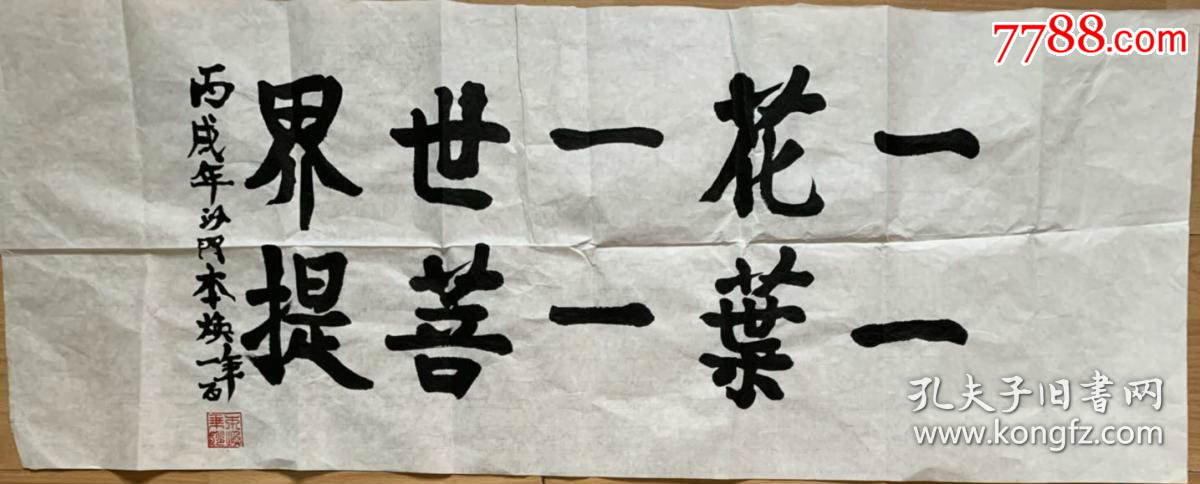 一花一世界
一葉一菩提
丙戌年沙門本焕年一百
7788.com
孔夫子旧书网
www.kongfz.com